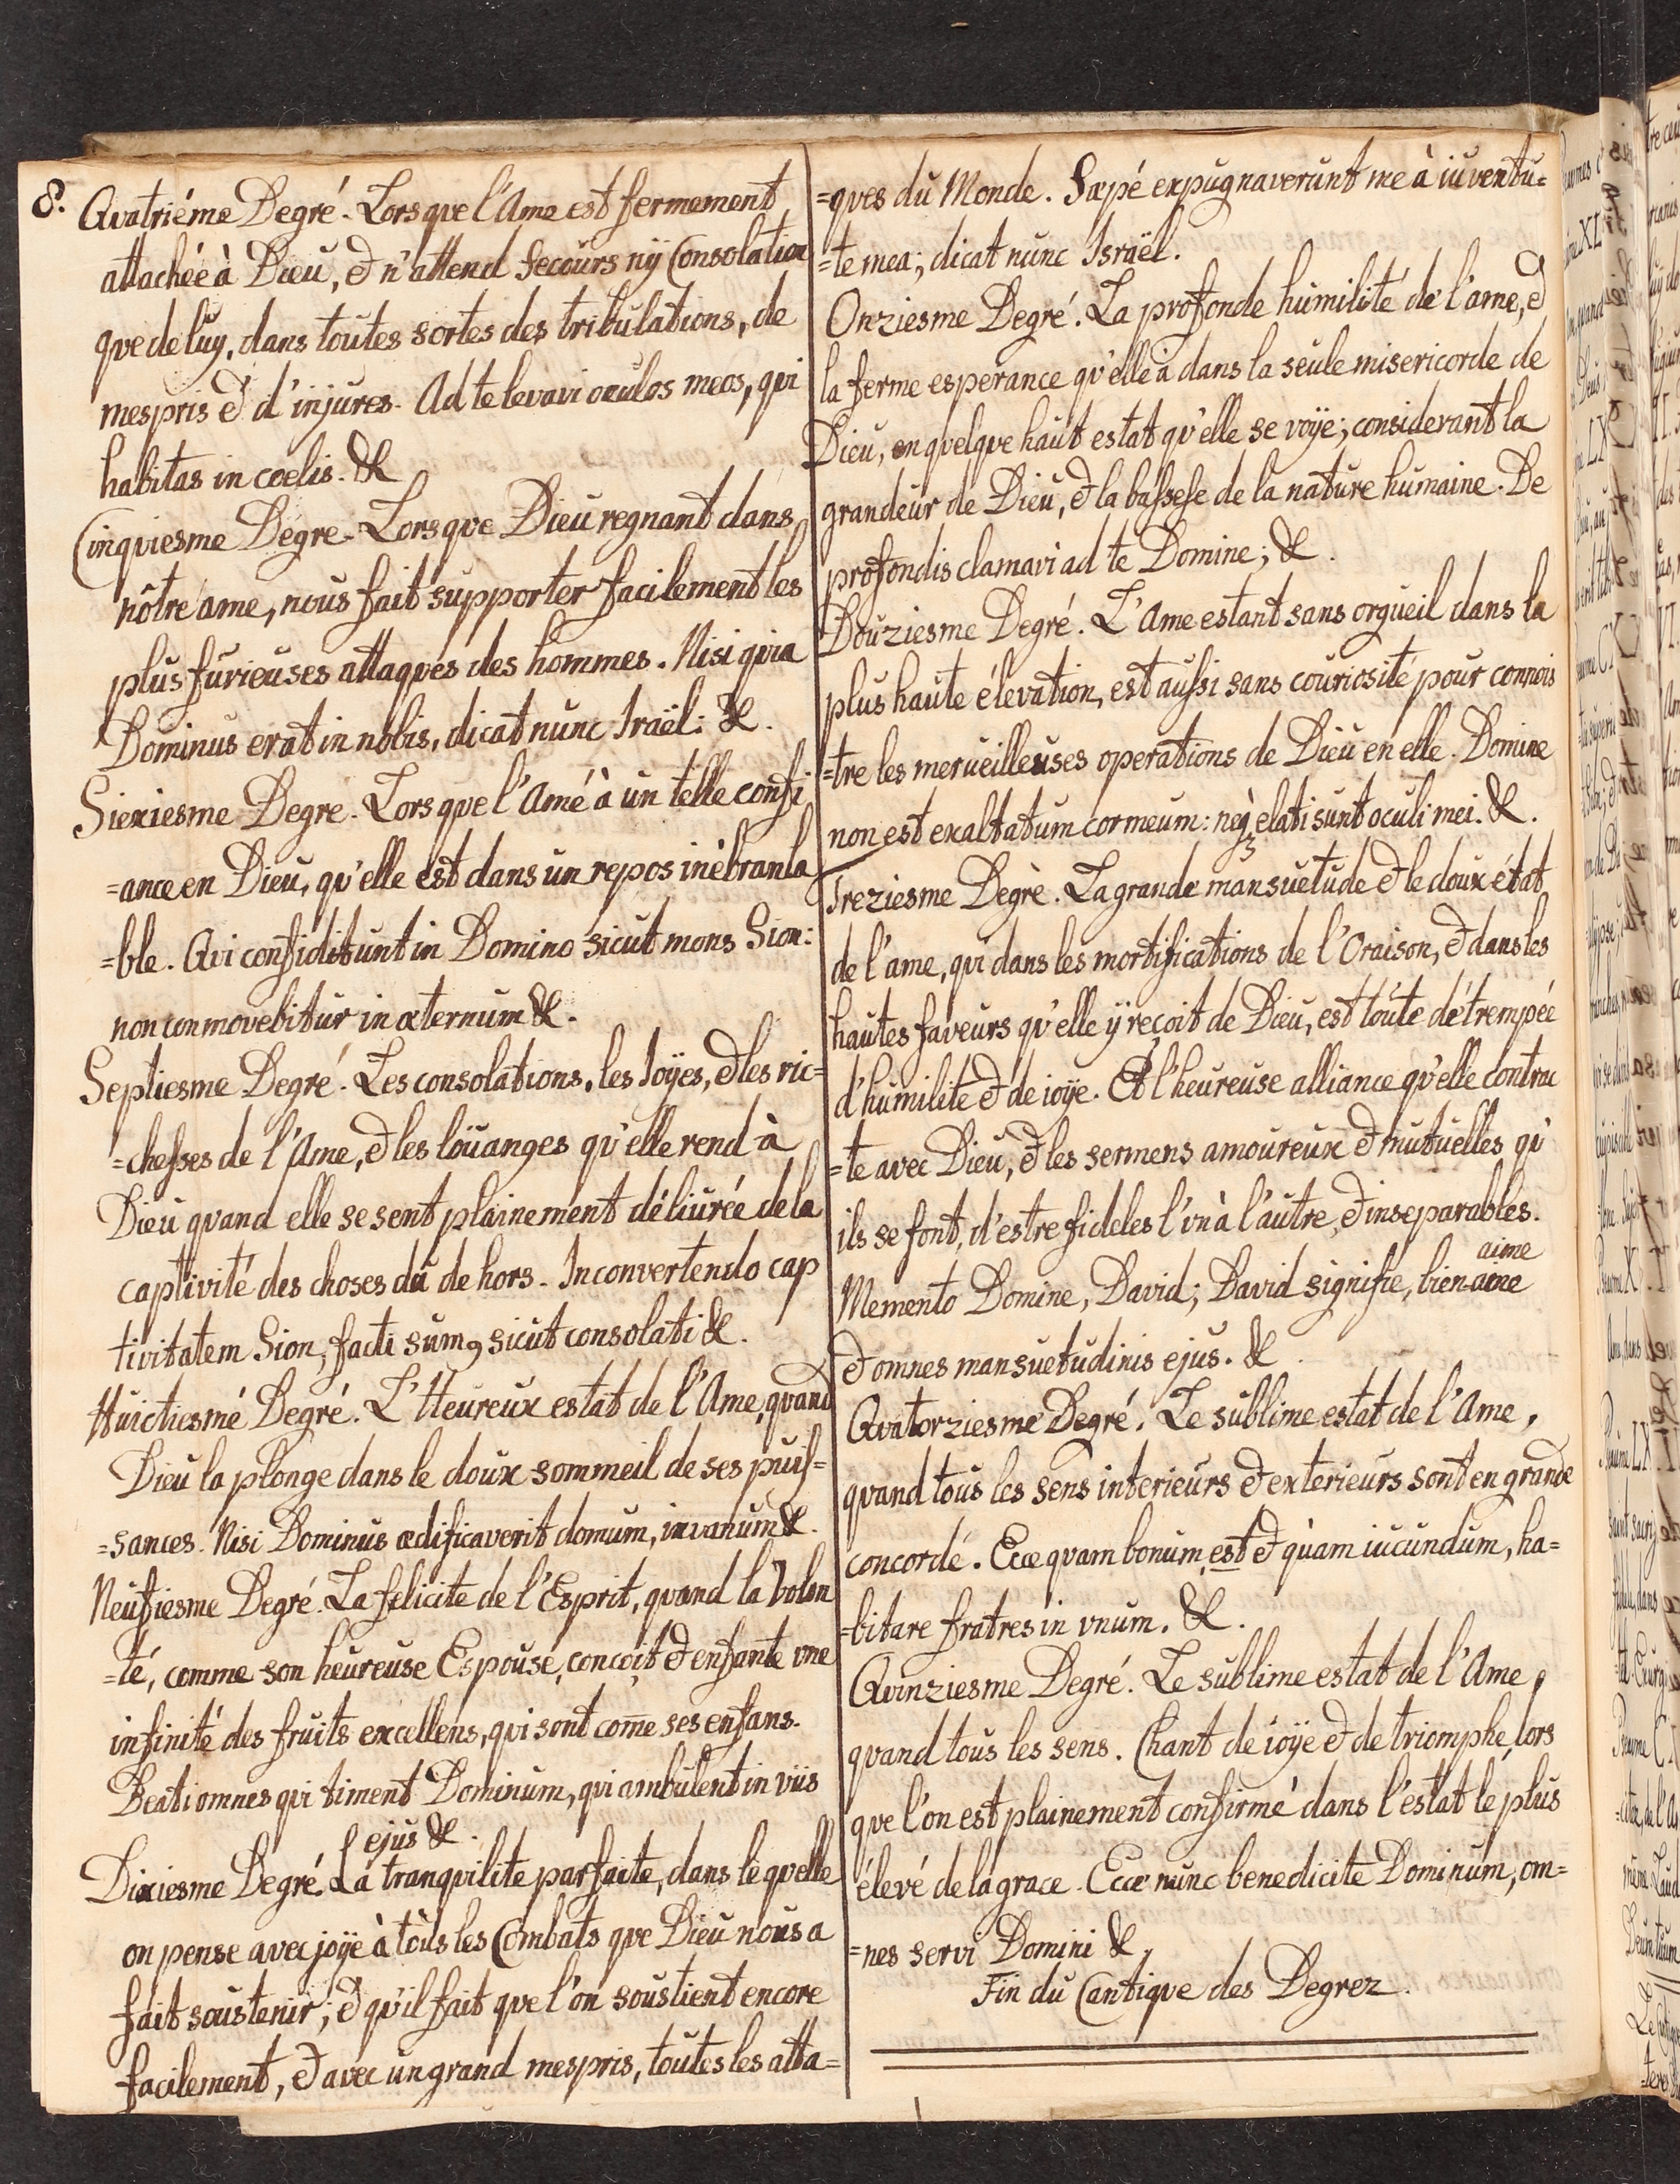 8. Quatriéme Degré. Lors que l'Ame est fermement
attachée à Dieu, & n'attend secours nÿ Consolation
que de luy, dans toutes sortes des tribulations, de
mespris & d'injures. Ad te levavi oculos meos, qui
habitas in coelis. &
Cinquiesme Degre. Lors que Dieu regnant dans
nôtre ame, nous fait supporter facilement les
plus furieuses attaques des hommes. Nisi quia
Dominus erat in nobis, dicat nunc Iraël: &.
Siexiesme Degre. Lors que l'Amé à un telle confi
=ance en Dieu, qu'elle est dans un repos inèbranla
=ble. Qui confiditunt in Domino sicut mons Sion:
non conmovebitur in æternum &.
Septiesme Degré. Les consolations, les Ioÿes, & les ric=
=chesses de l'Ame, & les loüanges qu'elle rend à
Dieu quand elle se sent plainement déliurée de la
captivité des choses du de hors. In convertendo cap
tivitatem Sion, facti sumꝯ sicut consolati &.
Huictiesmé Degré. L'Heureux estat de l'Ame, quand
Dieu la plonge dans le doux sommeil de ses puis=
=sances. Nisi Dominus ædificaverit domum, in vanum &.
Neufiesme Degré. La felicite de l'Esprit, quand la Volon
=té, comme son heureuse Espouse, conçoit & enfante vne
infinité des fruits excellens, qui sont com̃e ses enfans.
Beati omnes qui timent Dominum, qui ambulent in viis
ejus &.
Dixiesme Degré. La tranquilite parfaite, dans lèquelle
on pense avec joÿe à tous les Combats que Dieu nous a
fait soustenir; & qu'il fait que l'on soustient encore
facilement, & avec un grand mespris, toutes les atta=
=ques du Monde. Sæpé expugnaverunt me à iuventu=
=te mea; dicat nunc Israël.
Onziesme Degré. La profonde humilité de l'ame, &
la ferme esperance qu'elle a dans la seule misericorde de
Dieu, en quelque haut estat qu'elle se voÿe; considerant la
grandeur de Dieu, & la bassese de la nature humaine. De
profondis clamavi ad te Domine; &.
Douziesme Degré. L'Ame estant sans orgueil dans la
plus haute élevation, est aussi sans couriosité pour connois
=tre les merueilleuses operations de Dieu en elle. Domine
non est exaltatum cor meum: neqꝫ elati sunt oculi mei. &.
Treziesme Degrè. La grande mansuetude & le doux état
de l'ame, qui dans les mortifications de l'Oraison, & dans les
hautes faveurs qu'elle ÿ reçoit de Dieu, est toute détrempée
d'humilité & de ioÿe. Et l'heureuse alliance qu'elle contrac
=te avec Dieu, & les sermens amoureux & mutuelles qu'
ils se font, d'estre fideles l'vn à l'autre, & inseparables.
aime
Memento Domine, David; David signifie, bien-aime
& omnes mansuetudinis ejus. &.
Quatorziesme Degré. Le sublime estat de l'Ame,
quand tous les sens interieurs & exterieurs sont en grande
concorde. Ecce quam bonum est & quàm iucundum, ha=
=bitare fratres in vnum. &.
Quinziesme Degré. Le sublime estat de l'Ame,
quand tous les sens. Chant de ioÿe & de triomphe, lors
que l'on est plainement confirmé dans l'éstat le plus
élevé de la grace. Ecce nunc benedicite Dominum, om=
=nes servi Domini &,
Fin du Cantique des Degrez.